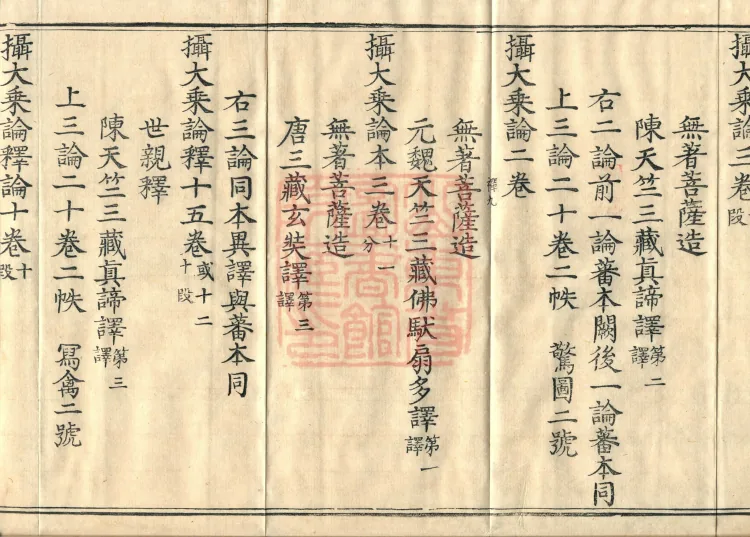 攝大乘論三卷 段
無著菩薩造
陳天竺三藏眞諦譯 第二譯
右二論前一論蕃本闕後一論蕃本同
上三論二十卷二帙 驚圖二號
攝大乘論二卷
無著菩薩造
元魏天竺三藏佛馱扇多譯 第一譯
攝大乘論本三卷 十一分
無著菩薩造
唐三藏玄奘譯 第三譯
右三論同本異譯與蕃本同
攝大乘論釋十五卷 或十二十段
世親釋
陳天竺三藏眞諦譯 第三譯
上三論二十卷二帙 冩禽二號
攝大乘論釋論十卷 十段